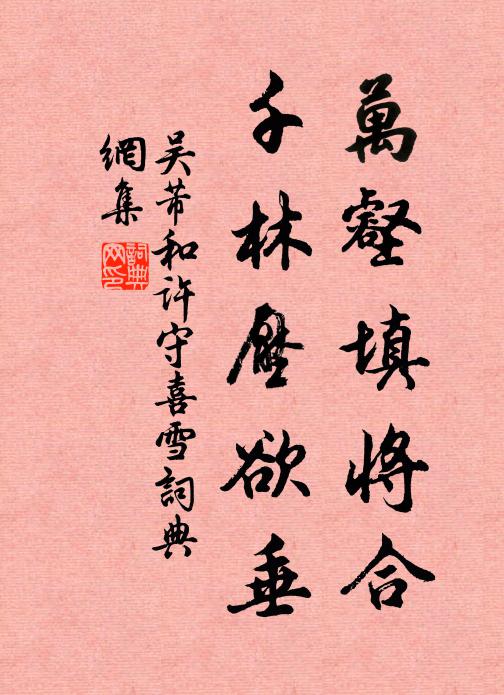 萬壑填將合
千林壓欲垂
吴芾和許守喜雪詞典
網集
詞典網印